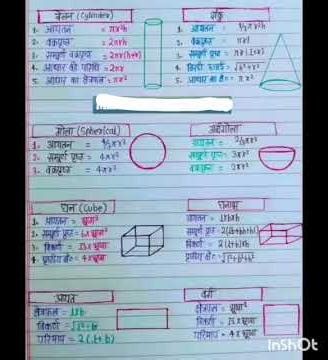 बेलन (Cylinder)
1. आयतन = πr²h
2. वक्रपृष्ठ = 2πrh
3. सम्पूर्ण वक्रपृष्ठ = 2πr(h+r)
4. आधार की परिधि = 2πr
5. आधार का क्षेत्रफल = πr²
शंकु
1. आयतन = ⅓πr²h
2. वक्रपृष्ठ = πrl
3. सम्पूर्ण पृष्ठ = πr(l+r)
4. तिर्यक
5. आधार का क्षे० = πr²
गोला (Spherical)
1. आयतन = 4/3πr³
2. सम्पूर्ण पृष्ठ = 4πr²
3. वक्रपृष्ठ = 4πr²
अर्धगोला
आयतन = 2/3πr³
सम्पूर्ण पृष्ठ = 3πr²
वक्रपृष्ठ = 2πr²
घन (Cube)
1. आयतन = भुजा³
2. सम्पूर्ण पृष्ठ = 6×भुजा²
3. विकर्ण = √3×भुजा
4.
घनाभ
आयतन = l×b×h
सम्पूर्ण पृष्ठ = 2(lb+bh+hl)
= 2(l+b)×h
आयत
क्षेत्रफल = l×b
विकर्ण = √l²+b²
परिमाप = 2(l+b)
वर्ग
क्षेत्रफल = भुजा²
विकर्ण = √2×भुजा
परिमाप = 4×भुजा
InShOt